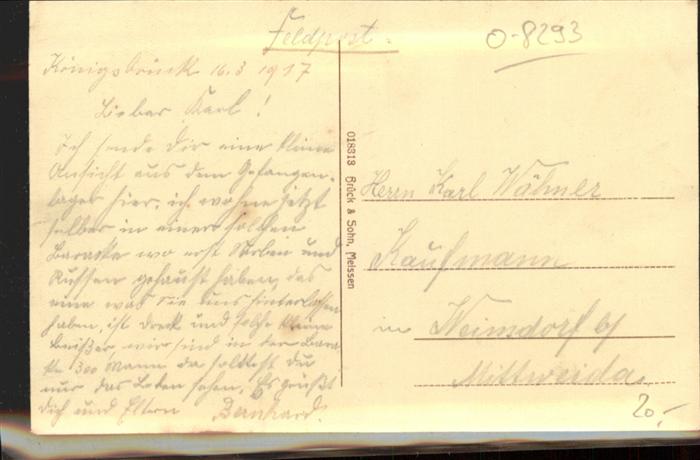 Feldpost.
O-8293
Königsbrück 16.3 1917
Lieber Karl!
Ich sende dir eine kleine
Ansicht aus dem Gefangen-
lager hier, ich wohne jetzt
selber in einer solchen
Baracke wo erst Serben und
Russen gehaust haben, das
eine was sie uns hinterlassen
haben, ist Dreck und solche kleine
wir sind in der Bara
cke 300 Mann da solltest du
nur das Leben sehen, Es grüßt
dich und Eltern Bernhard.
018313 Brück & Sohn, Meissen
Herrn Karl Wähner
Kaufmann
in Weinsdorf b/
Mittweida.
20,-